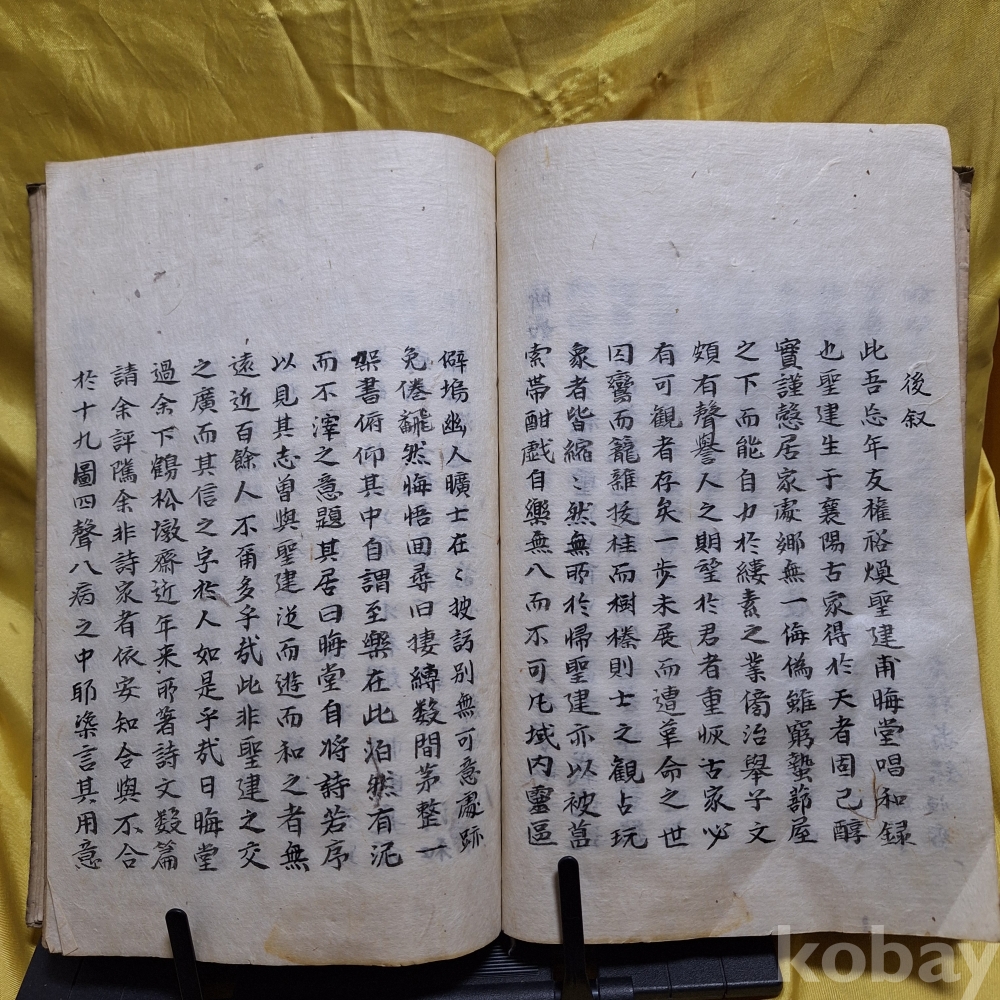 後叙
此吾忘年友權裕煥聖建甫晦堂唱和録
也聖建生于襄陽古家得於天者固己醇
實謹慤居家處鄉無一侮僞雖窮蟄蔀屋
之下而能自力於縷素之業傍治舉子文
頗有聲譽人之期望於君者重恢古家必
有可觀者存矣一步未展而遭革命之世
囚鸞而籠雞拔桂而樹榛則士之觀占玩
象者皆縮〻然無所於歸聖建亦以被菖
索帶酣戲自樂無八而不可凡域内靈區
僻塢幽人曠士在〻披訪別無可意處跡
免倦飜然悔悟回尋旧捿縛数間茅整一
架書俯仰其中自謂至樂在此泊然有泥
而不滓之意題其居曰晦堂自將詩若序
以見其志曽與聖建逆而遊而和之者無
遠近百餘人不甭多乎㢤此非聖建之交
之廣而其信之字於人如是乎㢤日晦堂
過余下鶴松墩齋近年来所著詩文数篇
請余評隲余非詩家者依安知合與不合
於十九圖四聲八病之中耶梁言其用意
kobay